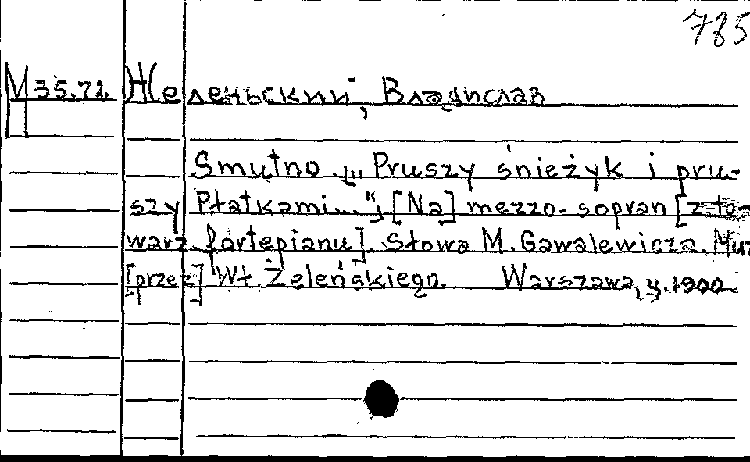 785
М 35.71. Желеньский, Владислав
Smutno „Pruszy śnieżyk i pru-
szy Płatkami..."; [Na] mezzo-sopran [z to-
warz. fortepianu]. Słowa M. Gawalewicza. Muz
[przez] Wł. Żeleńskiego. Warszawa, y. 1900